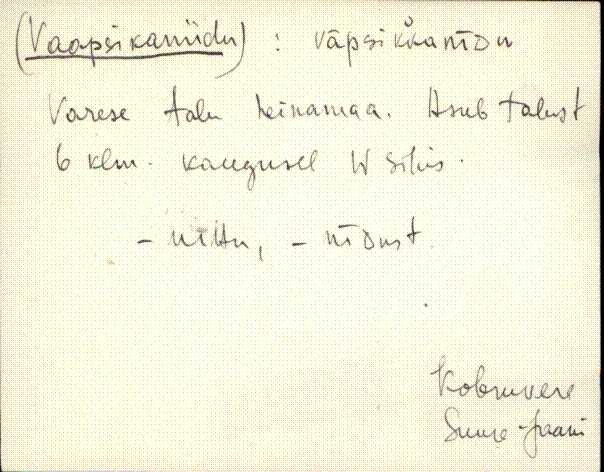 (Vaapsikaniidu) : vāpsikkanīDu
Varese talu heinamaa. Asub talust
6 klm. kaugusel W sihis.
- nīttu, - nīDust.
Kobruvere
Suure-Jaani